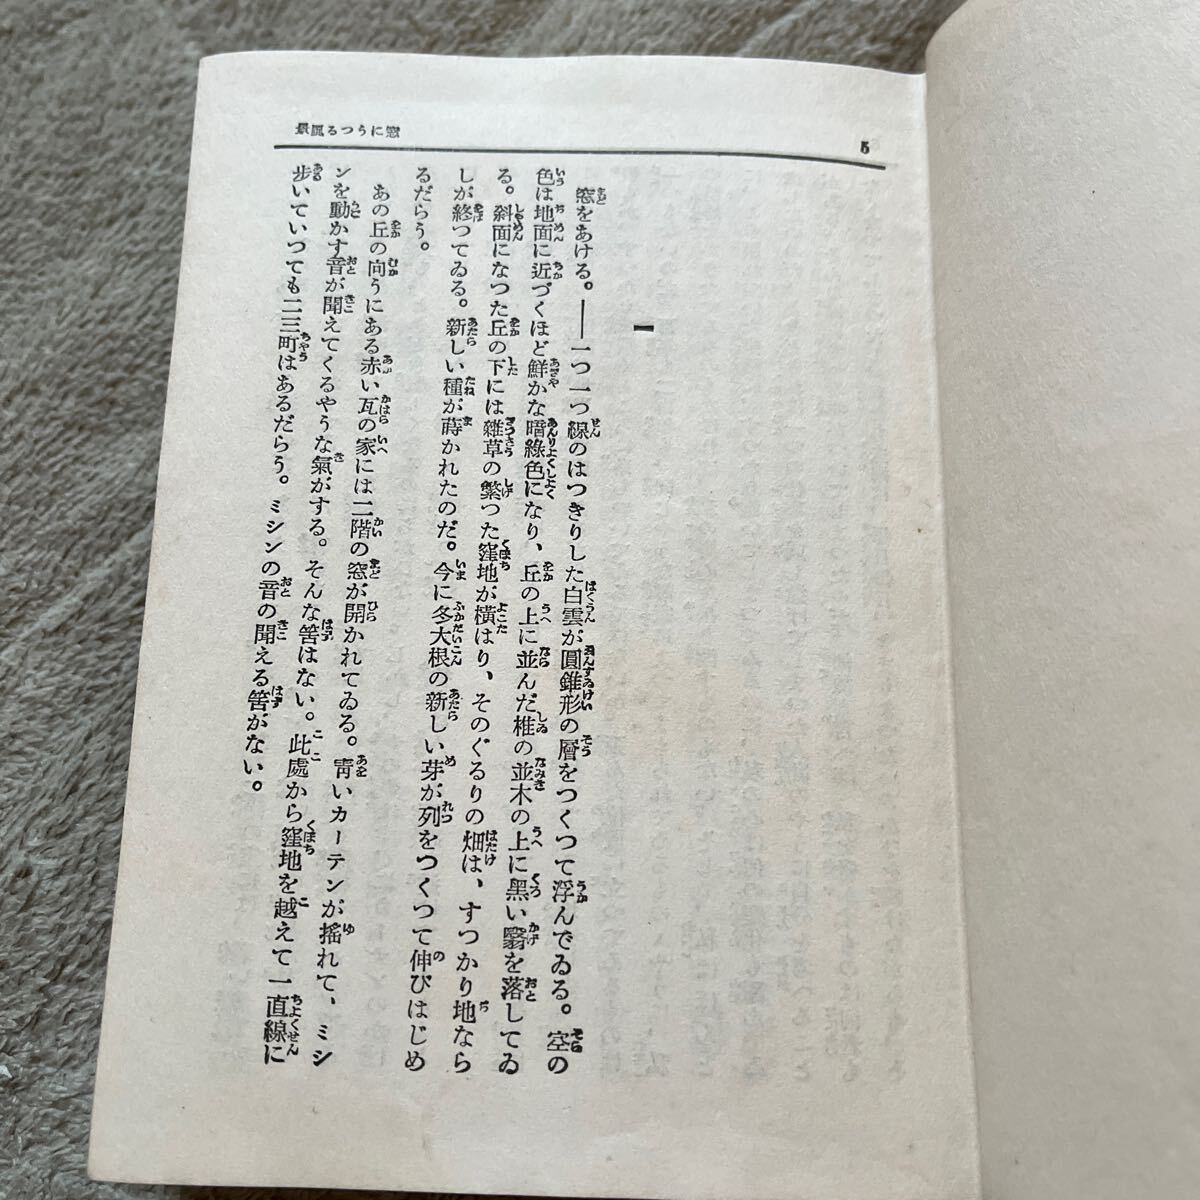 窓にうつる風景
5
一
窓をあける。――一つ一つ線のはつきりした白雲が圓錐形の層をつくつて浮んでゐる。空の
色は地面に近づくほど鮮かな暗綠色になり、丘の上に並んだ椎の並木の上に黑い翳を落してゐ
る。斜面になつた丘の下には雜草の繁つた窪地が橫はり、そのぐるりの畑は、すつかり地なら
しが終つてゐる。新しい種が蒔かれたのだ。今に冬大根の新しい芽が列をつくつて伸びはじめ
るだらう。
あの丘の向うにある赤い瓦の家には二階の窓が開かれてゐる。靑いカーテンが搖れて、ミシ
ンを動かす音が聞えてくるやうな氣がする。そんな筈はない。此處から窪地を越えて一直線に
步いていつても二三町はあるだらう。ミシンの音の聞える筈がない。